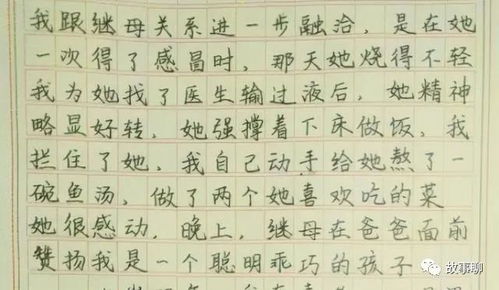 我跟继母关系进一步融洽，是在她
一次得了感昌时，那天她烧得不轻
我为她找了医生输过液后，她精神
略显好转，她强撑着下床做饭，我
拦住了她，我自己动手给她熬了一
碗鱼汤，做了两个她喜欢吃的菜
她很感动，晚上，继母在爸爸面前
赞扬我是一个聪明乖巧的孩子
故事聊